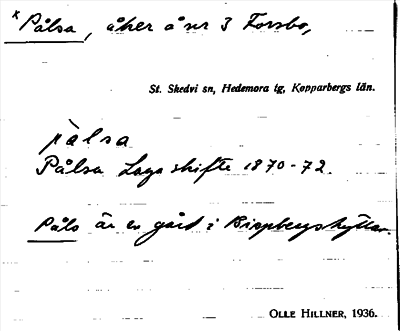 * Pålsa, åker å nr 3 Forsbo,
St. Skedvi sn, Hedemora tg, Kopparbergs län.
pålsa
Pålsa Laga skifte 1870-72.
Påls är en gård i Bispbergshyttan.
OLLE HILLNER, 1936.